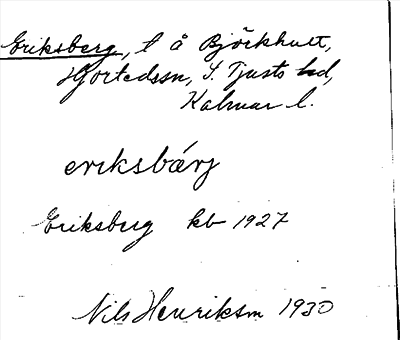 Eriksberg, l å Björkhult,
Hjortedssn, S. Tjusts hd,
Kalmar l.
eriksbárj
Eriksberg kb 1927
Nils Henriksm 1930